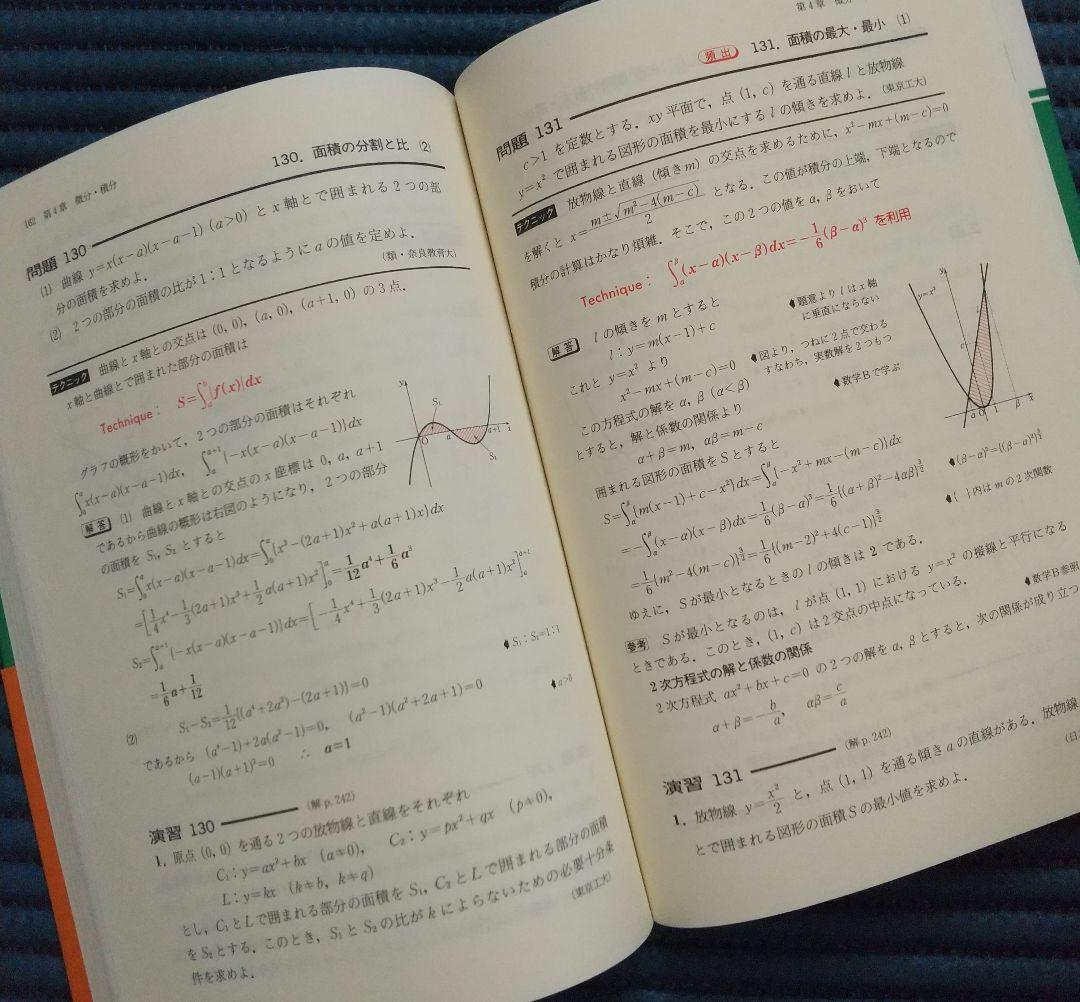 162 第4章 微分・積分
130. 面積の分割と比 (2)
問題 130
(1) 曲線 y=x(x-a)(x-a-1) (a>0) と x 軸とで囲まれる2つの部
分の面積を求めよ.
(2) 2つの部分の面積の比が1:1となるように a の値を定めよ.
(類・奈良教育大)
テクニック 曲線と x 軸との交点は (0, 0), (a, 0), (a+1, 0) の3点.
x 軸と曲線とで囲まれた部分の面積は
Technique: S=∫_a^b|f(x)|dx
グラフの概形をかいて, 2つの部分の面積はそれぞれ
∫_0^a x(x-a)(x-a-1)dx, ∫_a^{a+1}{-x(x-a)(x-a-1)}dx
y
S₁
O
a
a+1
x
S₂
解答 (1) 曲線と x 軸との交点の x 座標は 0, a, a+1
であるから曲線の概形は右図のようになり, 2つの部分
の面積を S₁, S₂ とすると
S₁=∫_0^a x(x-a)(x-a-1)dx=∫_0^a{x³-(2a+1)x²+a(a+1)x}dx
=[1/4 x⁴-1/3(2a+1)x³+1/2 a(a+1)x²]_0^a=1/12 a⁴+1/6 a³
S₂=∫_a^{a+1}{-x(x-a)(x-a-1)}dx=[-1/4 x⁴+1/3(2a+1)x³-1/2 a(a+1)x²]_a^{a+1}
=1/6 a+1/12
(2) S₁-S₂=1/12{(a⁴+2a³)-(2a+1)}=0
♦S₁:S₂=1:1
であるから (a⁴-1)+2a(a²-1)=0, (a²-1)(a²+2a+1)=0
(a-1)(a+1)³=0 ∴ a=1
♦a>0
演習 130
(解 p.242)
1. 原点 (0, 0) を通る2つの放物線と直線をそれぞれ
C₁: y=ax²+bx (a≠0), C₂: y=px²+qx (p≠0),
L: y=kx (k≠b, k≠q)
とし, C₁ と L で囲まれる部分の面積を S₁, C₂ と L で囲まれる部分の面積
を S₂ とする. このとき, S₁ と S₂ の比が k によらないための必要十分条
件を求めよ.
(東京工大)
第4章 微分
頻出 131. 面積の最大・最小 (1)
問題 131
c>1 を定数とする. xy 平面で, 点 (1, c) を通る直線 l と放物線
y=x² で囲まれる図形の面積を最小にする l の傾きを求めよ. (東京工大)
テクニック 放物線と直線 (傾き m) の交点を求めるために, x²-mx+(m-c)=0
を解くと x=(m±√(m²-4(m-c)))/2 となる. この値が積分の上端, 下端となるので
積分の計算はかなり煩雑. そこで, この2つの値を α, β をおいて
Technique: ∫_α^β(x-α)(x-β)dx=-1/6(β-α)³ を利用
解答 l の傾きを m とすると
l: y=m(x-1)+c
♦題意より l は x 軸
に垂直にならない
これと y=x² より
x²-mx+(m-c)=0
♦図より, つねに2点で交わる
すなわち, 実数解を2つもつ
この方程式の解を α, β (α<β)
とすると, 解と係数の関係より
♦数学Bで学ぶ
α+β=m, αβ=m-c
y
y=x²
l
c
α O 1 β x
囲まれる図形の面積を S とすると
S=∫_α^β{m(x-1)+c-x²}dx=∫_α^β{-x²+mx-(m-c)}dx
=-∫_α^β(x-α)(x-β)dx=1/6(β-α)³=1/6{(α+β)²-4αβ}^{3/2}
♦(β-α)³={(β-α)²}^{3/2}
=1/6{m²-4(m-c)}^{3/2}=1/6{(m-2)²+4(c-1)}^{3/2}
♦{ }内は m の2次関数
ゆえに, S が最小となるときの l の傾きは 2 である.
参考 S が最小となるのは, l が点 (1, 1) における y=x² の接線と平行になる
ときである. このとき, (1, c) は2交点の中点になっている.
2次方程式の解と係数の関係
♦数学B参照
2次方程式 ax²+bx+c=0 の2つの解を α, β とすると, 次の関係が成り立つ
α+β=-b/a, αβ=c/a
演習 131
(解 p.242)
1. 放物線 y=x²/2 と, 点 (1, 1) を通る傾き a の直線がある. 放物線
とで囲まれる図形の面積 S の最小値を求めよ.